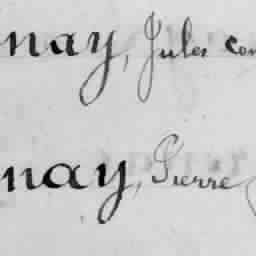 nay, Jules con
nay, Pierre